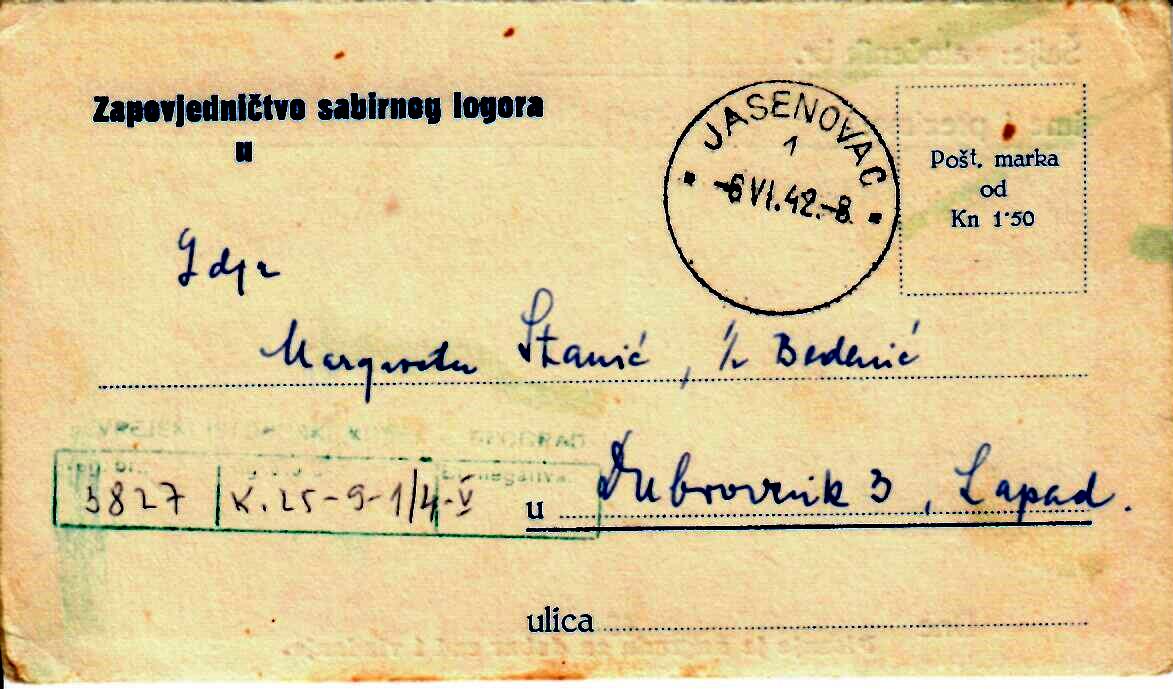 Zapovjedničtvo sabirnog logora
u
JASENOVAC
1
-6 VI. 42.-8
Pošt. marka
od
Kn 1·50
Gdja
Margareta Stanić, Bedenić
BEOGRAD
3827 K. 25-9-1/4-V
u Dubrovnik 3, Lapad.
ulica